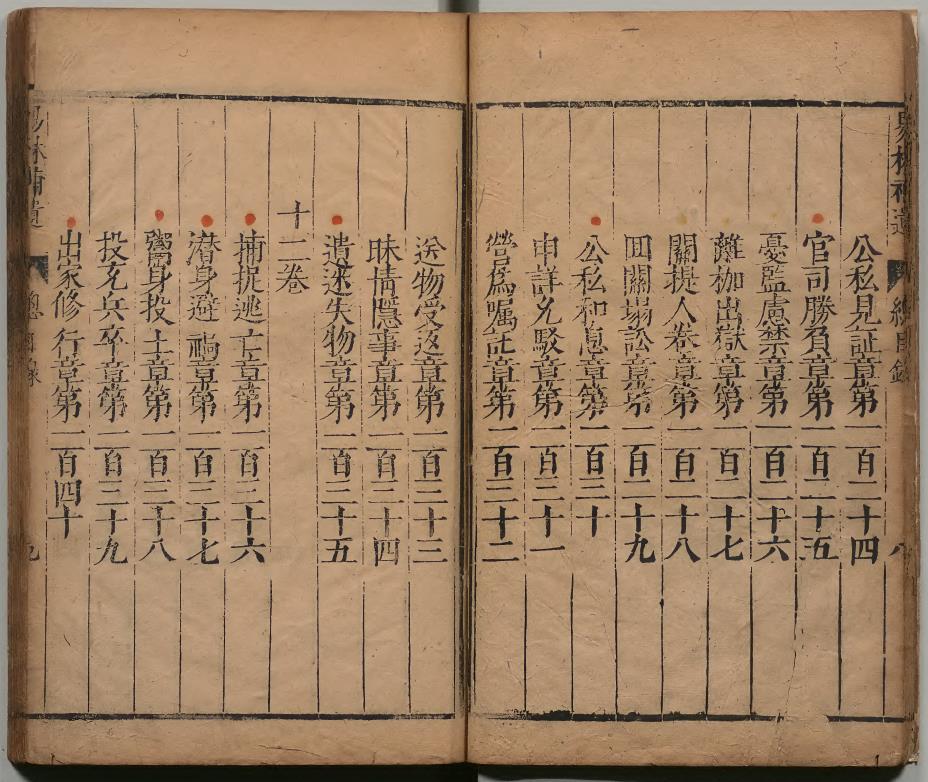 易林補遺 總目錄 八
公私見証章第一百二十四
官司勝負章第一百二十五
憂監慮禁章第一百二十六
離枷出獄章第一百二十七
關提人卷章第一百二十八
回關塌訟章第一百二十九
公私和息章第一百三十
申詳允駁章第一百三十一
營為囑託章第一百三十二
送物受返章第一百三十三
昧情隱事章第一百三十四
遺迷失物章第一百三十五
十二卷
捕捉逃亡章第一百三十六
潜身避禍章第一百三十七
鬻身投主章第一百三十八
投充兵卒章第一百三十九
出家修行章第一百四十
易林補遺 總目錄 九